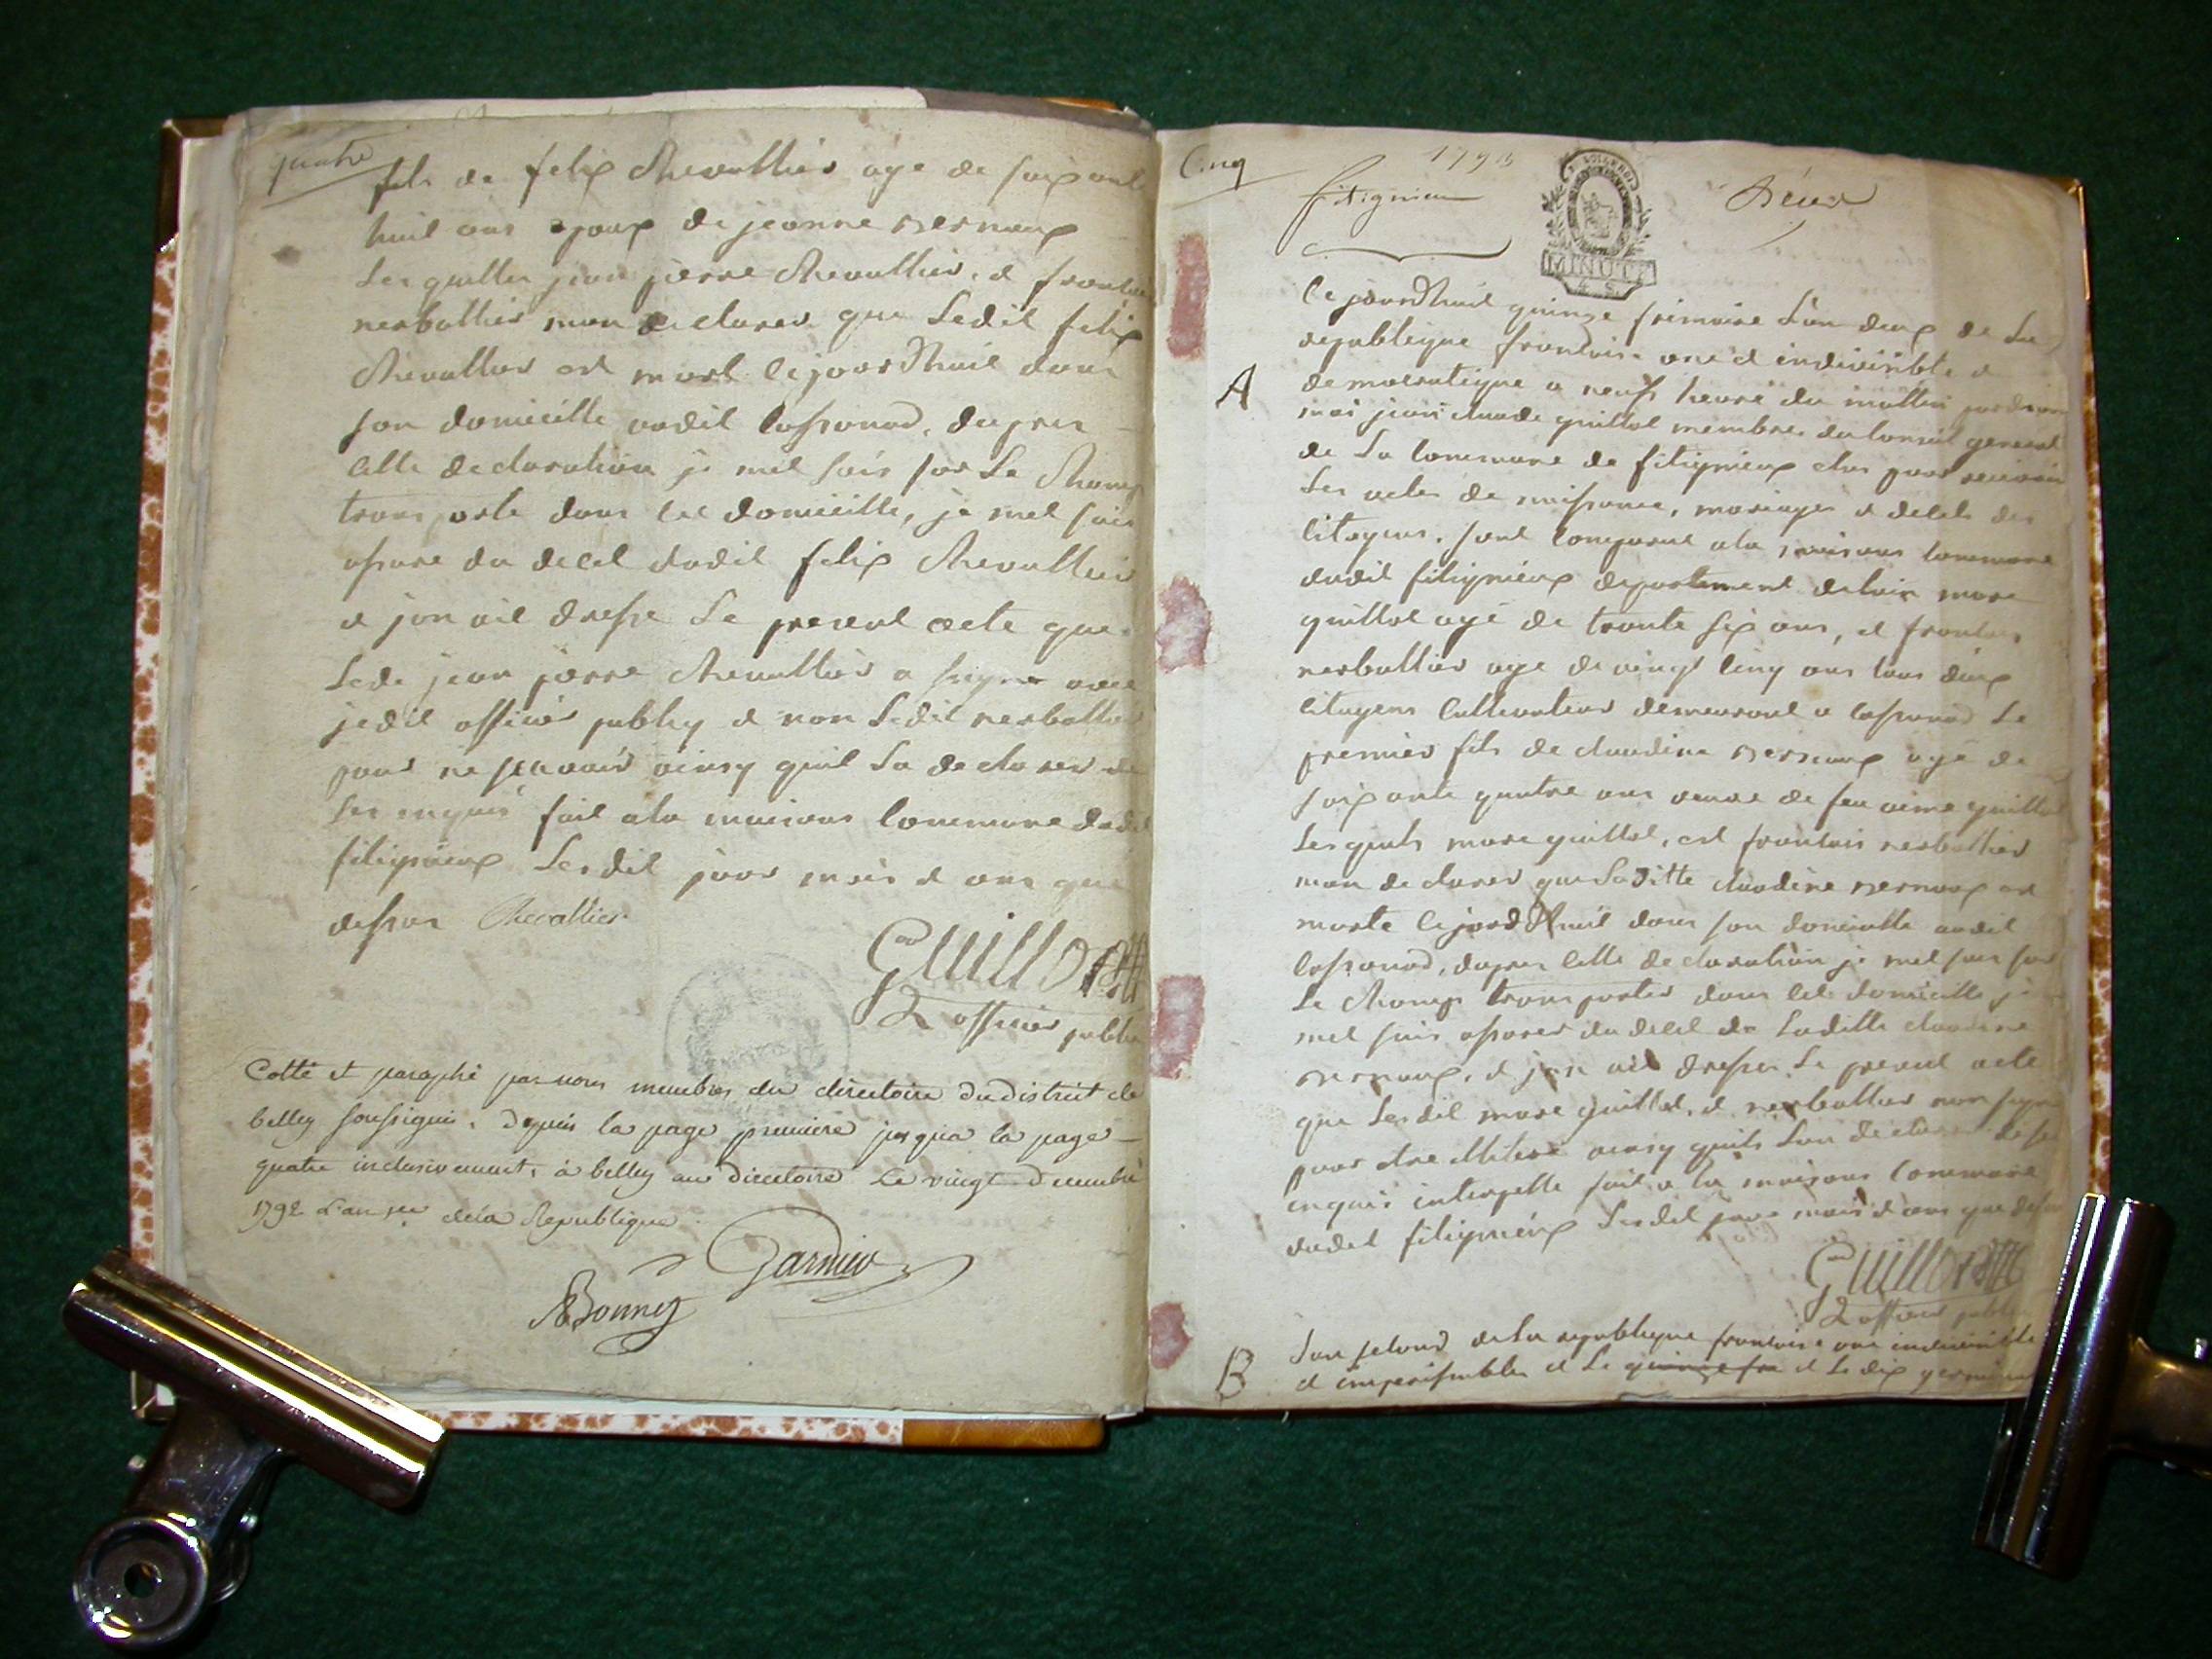 quatre
fils de felix Chevallier agé de soixante
huit ans epoux de jeanne
Lesquelles jean pierre Chevallier, et francois
nerballier mon declarer que Ledit felix
Chevallier est mort cejourdhuit dans
son domicille audit Cossonod, dapres
cette declaration je met suis sur Le Champ
transporte dans cet domicille, je met suis
assure du decet dudit felix Chevallier
et jen ait dresse Le present acte que
Ledi jean pierre Chevallier a signe avec
officier public et non Ledit nerballier
pour ne scavoir ainsy quil La declarer de
fait ala maisons Commune dudit
fitignieux Lesdit jour mois et ans que
dessus Chevallier
Guillot
Lofficier public
Cotté et paraphé par nous membres du directoire du district de
belley soussignés, depuis la page premiere jusqua la page
quatre inclusivement, à belley au directoire Le vingt décembre
1792 L'an 1er dela Republique
Garnier
Bonnet
Cinq
1793
fitignieu
MINUTE
4 S.
Ce jourdhuit quinze frimaire L'an deux de La
republique francoise une et indivisible et
A
democratique a neufs heure du mattin
moi jean claude guillot membre du Conseil general
de La Commune de fitignieux elus pour recevoir
Les actes de naissance, mariages et decets des
Citoyens, sont Comparut ala maisons Commune
dudit fitignieux departement delain marc
guillot agé de trante six ans, et francois
nerballier agé de vingt cinq ans tous deux
Citoyens Cultivateur demeurant a Cossonod Le
premier fils de claudine agé de
soixante quatre ans veuve de feu aimé guillot
Lesquels marc guillot, est francois nerballier
mon declarer que Laditte claudine est
morte cejourdhuit dans son domicille audit
Cossonod, dapres cette declaration je met suis sur
Le Champ transporter dans cet domicille je
met suis assurer du decet de Laditte claudine
et jen ait dresser Le present acte
que Lesdit marc guillot, et nerballier non signe
pour etre ainsy quils Lon declarer de ce
enquis interpelle fait a la maisons Commune
dudit fitignieux Lesdit jour mois et ans que dessus
Guillot
Lofficier public
B
Lan second de La republique francoise une indivisible
et imperissable et Le quinze et Le dix germinal